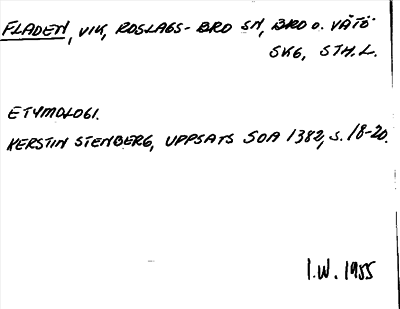 FLADEN, VIK, ROSLAGS-BRO SN, BRO O. VÄTÖ
SKG, STH.L.
ETYMOLOGI.
KERSTIN STENBERG, UPPSATS SOA 1382, S. 18-20.
I.W. 1955